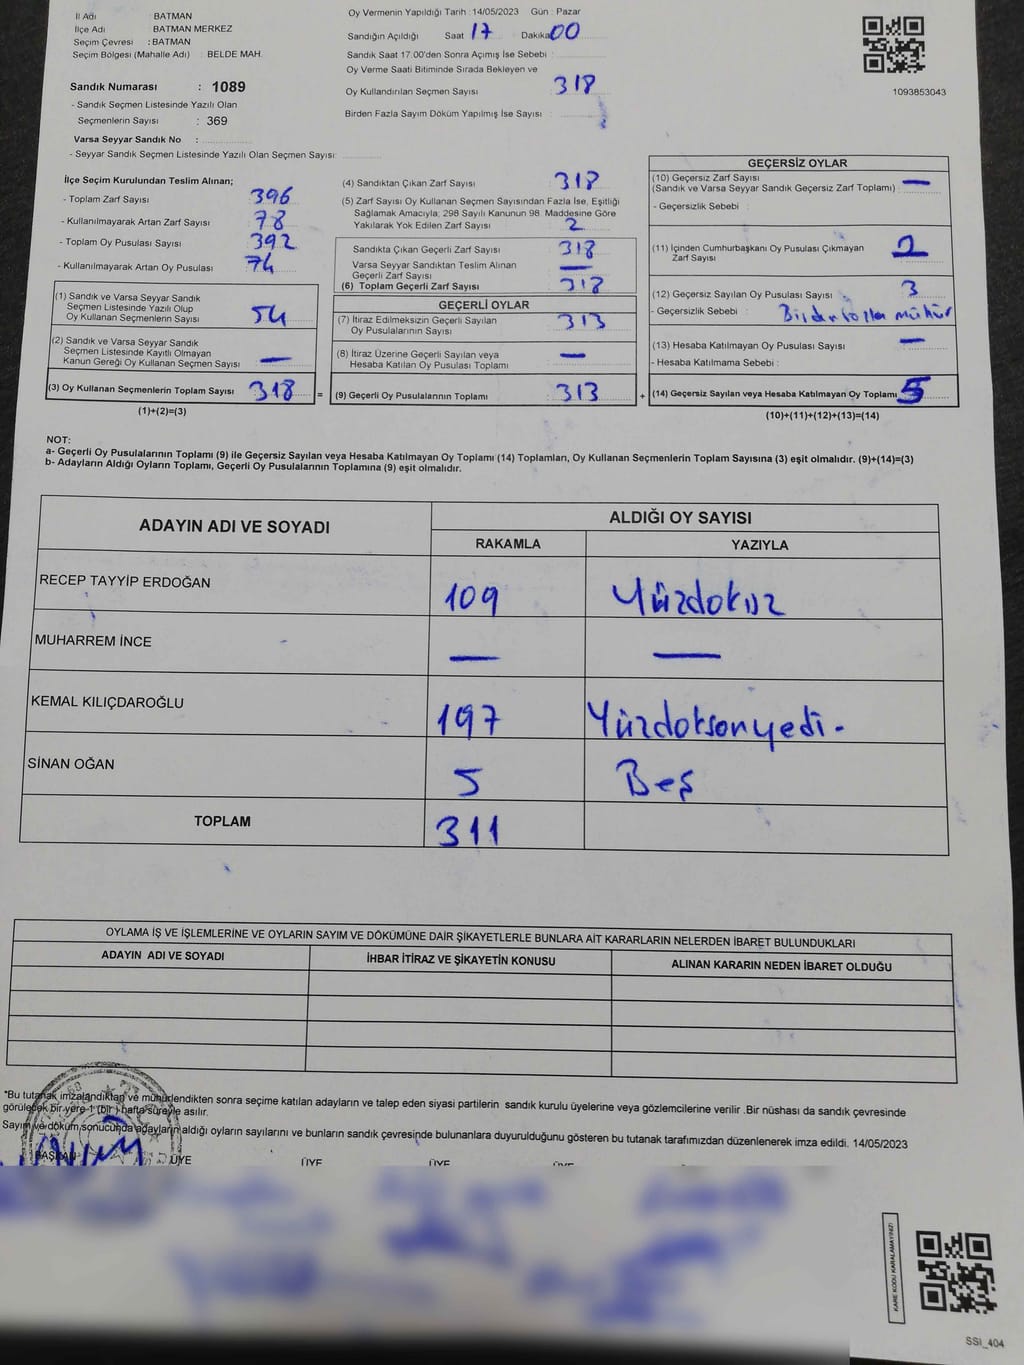 İl Adı : BATMAN
İlçe Adı : BATMAN MERKEZ
Seçim Çevresi : BATMAN
Seçim Bölgesi (Mahalle Adı) : BELDE MAH.
Sandık Numarası : 1089
- Sandık Seçmen Listesinde Yazılı Olan
Seçmenlerin Sayısı : 369
Varsa Seyyar Sandık No :
- Seyyar Sandık Seçmen Listesinde Yazılı Olan Seçmen Sayısı:
Oy Vermenin Yapıldığı Tarih : 14/05/2023 Gün : Pazar
Sandığın Açıldığı Saat 17 Dakika 00
Sandık Saat 17.00'den Sonra Açımış İse Sebebi :
Oy Verme Saati Bitiminde Sırada Bekleyen ve
Oy Kullandırılan Seçmen Sayısı : 318
Birden Fazla Sayım Döküm Yapılmış İse Sayısı :
1093853043
İlçe Seçim Kurulundan Teslim Alınan;
- Toplam Zarf Sayısı : 396
- Kullanılmayarak Artan Zarf Sayısı : 78
- Toplam Oy Pusulası Sayısı : 392
- Kullanılmayarak Artan Oy Pusulası : 74
(1) Sandık ve Varsa Seyyar Sandık
Seçmen Listesinde Yazılı Olup
Oy Kullanan Seçmenlerin Sayısı
(2) Sandık ve Varsa Seyyar Sandık
Seçmen Listesinde Kayıtlı Olmayan
Kanun Gereği Oy Kullanan Seçmen Sayısı —
(3) Oy Kullanan Seçmenlerin Toplam Sayısı 318 =
(1)+(2)=(3)
(4) Sandıktan Çıkan Zarf Sayısı : 318
(5) Zarf Sayısı Oy Kullanan Seçmen Sayısından Fazla İse, Eşitliği
Sağlamak Amacıyla; 298 Sayılı Kanunun 98. Maddesine Göre
Yakılarak Yok Edilen Zarf Sayısı : 2
Sandıkta Çıkan Geçerli Zarf Sayısı : 318
Varsa Seyyar Sandıktan Teslim Alınan
Geçerli Zarf Sayısı : —
(6) Toplam Geçerli Zarf Sayısı : 318
GEÇERLİ OYLAR
(7) İtiraz Edilmeksizin Geçerli Sayılan
Oy Pusulalarının Sayısı : 313
(8) İtiraz Üzerine Geçerli Sayılan veya
Hesaba Katılan Oy Pusulası Toplamı : —
(9) Geçerli Oy Pusulalarının Toplamı : 313 +
GEÇERSİZ OYLAR
(10) Geçersiz Zarf Sayısı : —
(Sandık ve Varsa Seyyar Sandık Geçersiz Zarf Toplamı)
- Geçersizlik Sebebi :
(11) İçinden Cumhurbaşkanı Oy Pusulası Çıkmayan
Zarf Sayısı : 2
(12) Geçersiz Sayılan Oy Pusulası Sayısı : 3
- Geçersizlik Sebebi : Birden fazla mühür
(13) Hesaba Katılmayan Oy Pusulası Sayısı : —
- Hesaba Katılmama Sebebi :
(14) Geçersiz Sayılan veya Hesaba Katılmayan Oy Toplamı : 5
(10)+(11)+(12)+(13)=(14)
NOT:
a- Geçerli Oy Pusulalarının Toplamı (9) ile Geçersiz Sayılan veya Hesaba Katılmayan Oy Toplamı (14) Toplamları, Oy Kullanan Seçmenlerin Toplam Sayısına (3) eşit olmalıdır. (9)+(14)=(3)
b- Adayların Aldığı Oyların Toplamı, Geçerli Oy Pusulalarının Toplamına (9) eşit olmalıdır.
ADAYIN ADI VE SOYADI ALDIĞI OY SAYISI
RAKAMLA YAZIYLA
RECEP TAYYİP ERDOĞAN 109 Yüzdokuz
MUHARREM İNCE — —
KEMAL KILIÇDAROĞLU 197 Yüzdoksanyedi -
SİNAN OĞAN 5 Beş
TOPLAM 311
OYLAMA İŞ VE İŞLEMLERİNE VE OYLARIN SAYIM VE DÖKÜMÜNE DAİR ŞİKAYETLERLE BUNLARA AİT KARARLARIN NELERDEN İBARET BULUNDUKLARI
ADAYIN ADI VE SOYADI İHBAR İTİRAZ VE ŞİKAYETİN KONUSU ALINAN KARARIN NEDEN İBARET OLDUĞU
*Bu tutanak imzalandıktan ve mühürlendikten sonra seçime katılan adayların ve talep eden siyasi partilerin sandık kurulu üyelerine veya gözlemcilerine verilir .Bir nüshası da sandık çevresinde
görülecek bir yere 1 (bir) hafta süreyle asılır.
Sayım ve döküm sonucunda adayların aldığı oyların sayılarını ve bunların sandık çevresinde bulunanlara duyurulduğunu gösteren bu tutanak tarafımızdan düzenlenerek imza edildi. 14/05/2023
BAŞKAN ÜYE ÜYE ÜYE ÜYE
KARE KODU KARALAMAYINIZ!
SSİ_404